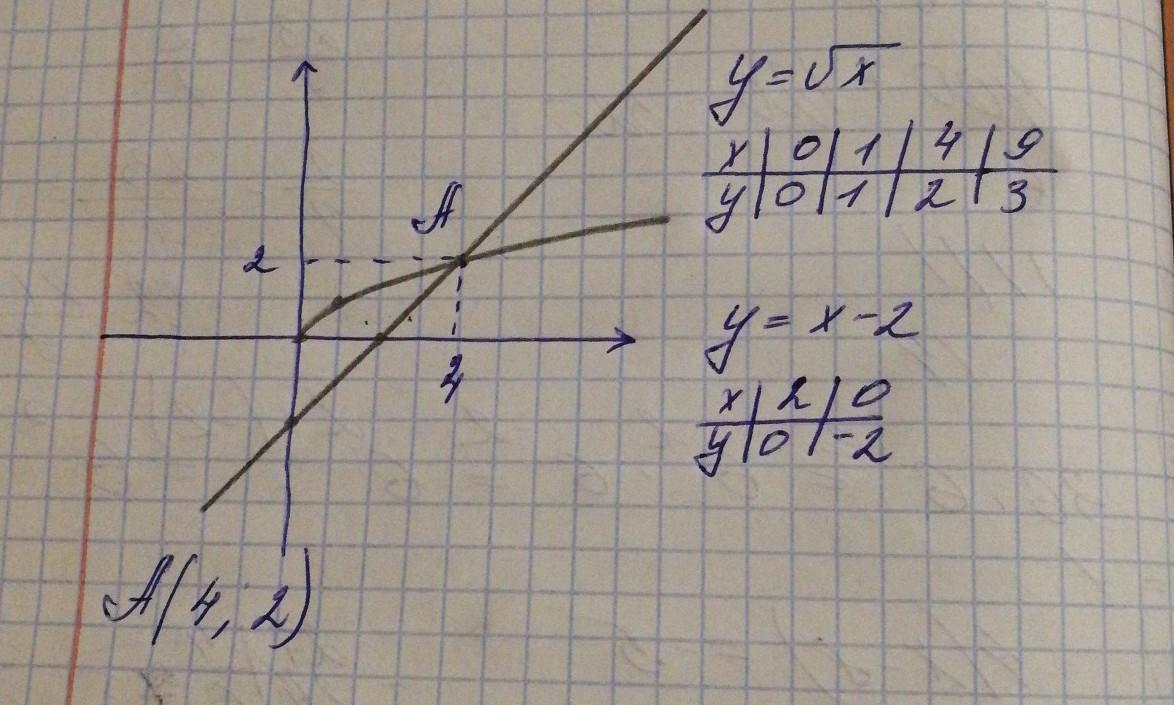 y = √x
x | 0 | 1 | 4 | 9
y | 0 | 1 | 2 | 3
A
2
4
y = x - 2
x | 2 | 0
y | 0 | -2
A(4, 2)